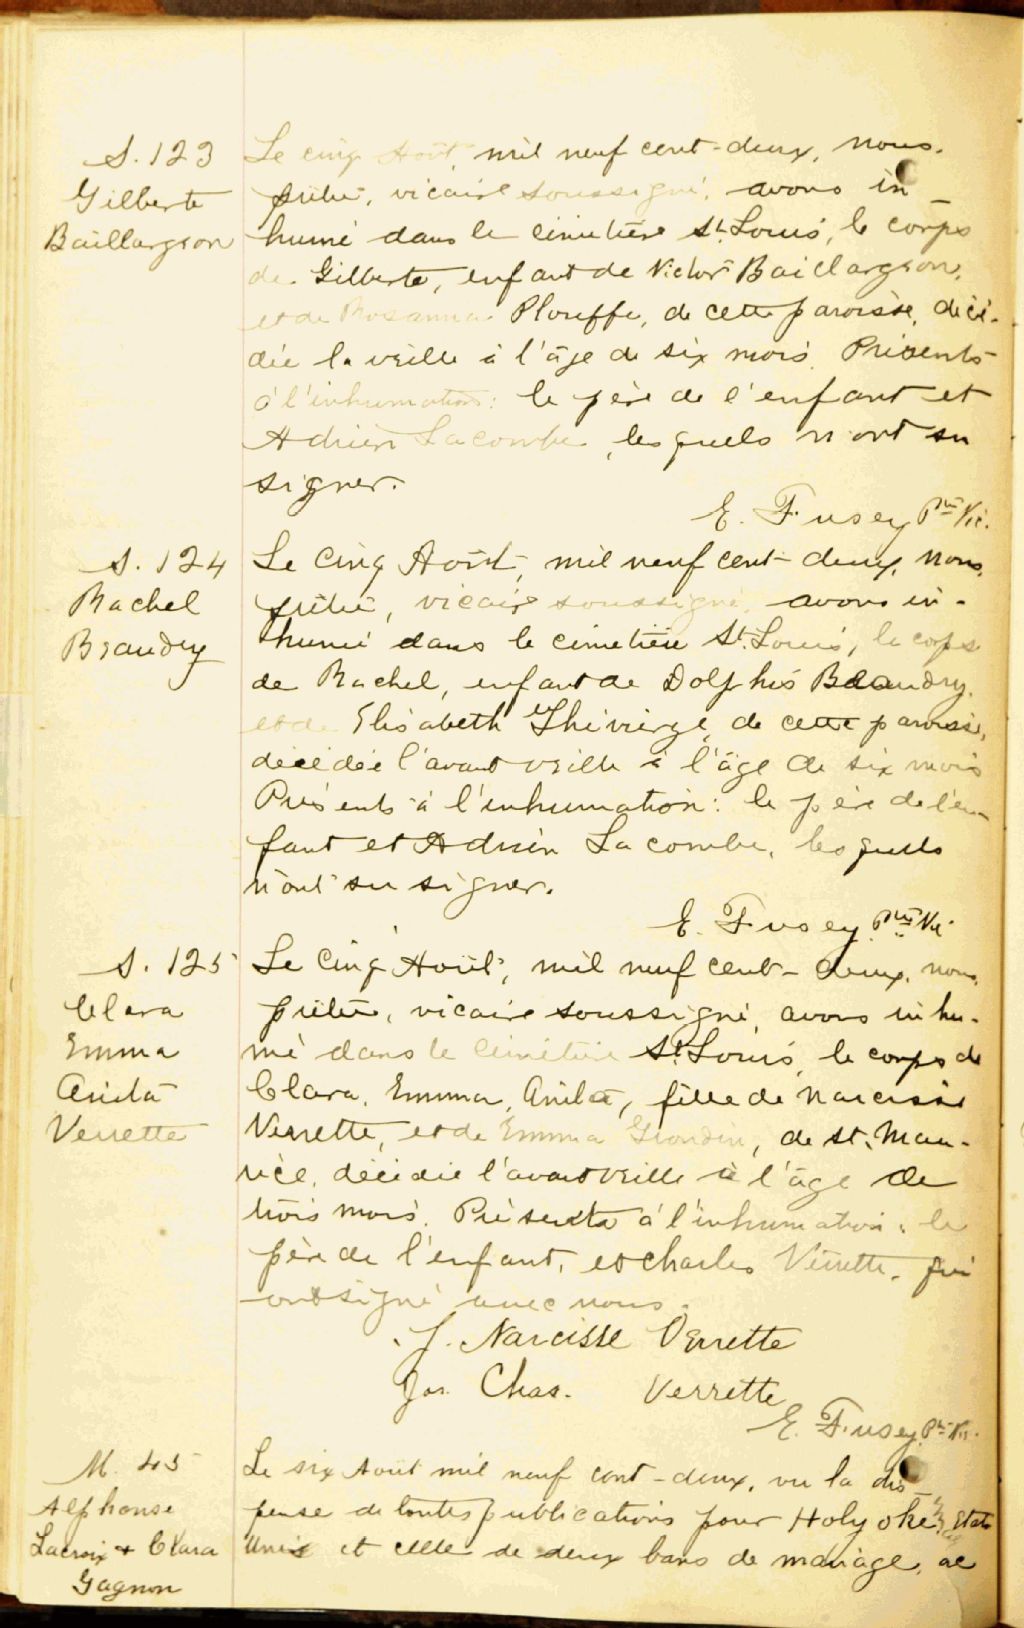 S. 123
Gilberte
Baillargeon
Le cinq Août, mil neuf cent-deux, nous,
prêtre, vicaire soussigné, avons in
humé dans le cimetière St. Louis, le corps
de Gilberte, enfant de Victor Baillargeon,
et de Rosanna Plouffe, de cette paroisse, décé-
dée la veille à l'âge de six mois. Présents
à l'inhumation: le père de l'enfant et
Adrien Lacombe, lesquels n'ont su
signer.
E. Fusey Ptre Vic.
S. 124
Rachel
Beaudry
Le cinq Août, mil neuf cent-deux, nous,
prêtre, vicaire soussigné, avons in-
humé dans le cimetière St. Louis, le corps
de Rachel, enfant de Dolphis Beaudry,
et de Elisabeth Thivierge, de cette paroisse,
décédée l'avant veille à l'âge de six mois
Présents à l'inhumation: le père de l'en-
fant et Adrien Lacombe, lesquels
n'ont su signer.
E. Fusey Ptre Vic.
S. 125
Clara
Emma
Anita
Verrette
Le cinq Août, mil neuf cent-deux, nous,
prêtre, vicaire soussigné, avons inhu-
mé dans le cimetière St. Louis, le corps de
Clara, Emma, Anita, fille de Narcisse
Verrette, et de Emma Grondin, de St. Mau-
rice, décédée l'avant veille à l'âge de
trois mois. Présents à l'inhumation: le
père de l'enfant, et Charles Verrette, qui
ont signé avec nous.
J. Narcisse Verrette
Jos. Chas. Verrette
E. Fusey, Ptre Vic.
M. 45
Alphonse
Lacroix & Clara
Gagnon
Le six Août mil neuf cent-deux, vu la dis-
pense de toutes publications pour Holyoke, Etats
Unis et celle de deux bans de mariage, ac